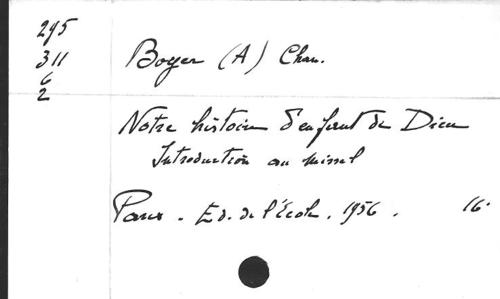 295
311
6
2
Boyer (A) Chan.
Notre histoire d'enfant de Dieu
Introduction au missel
Paris. Ed. de l'École. 1956. 16°